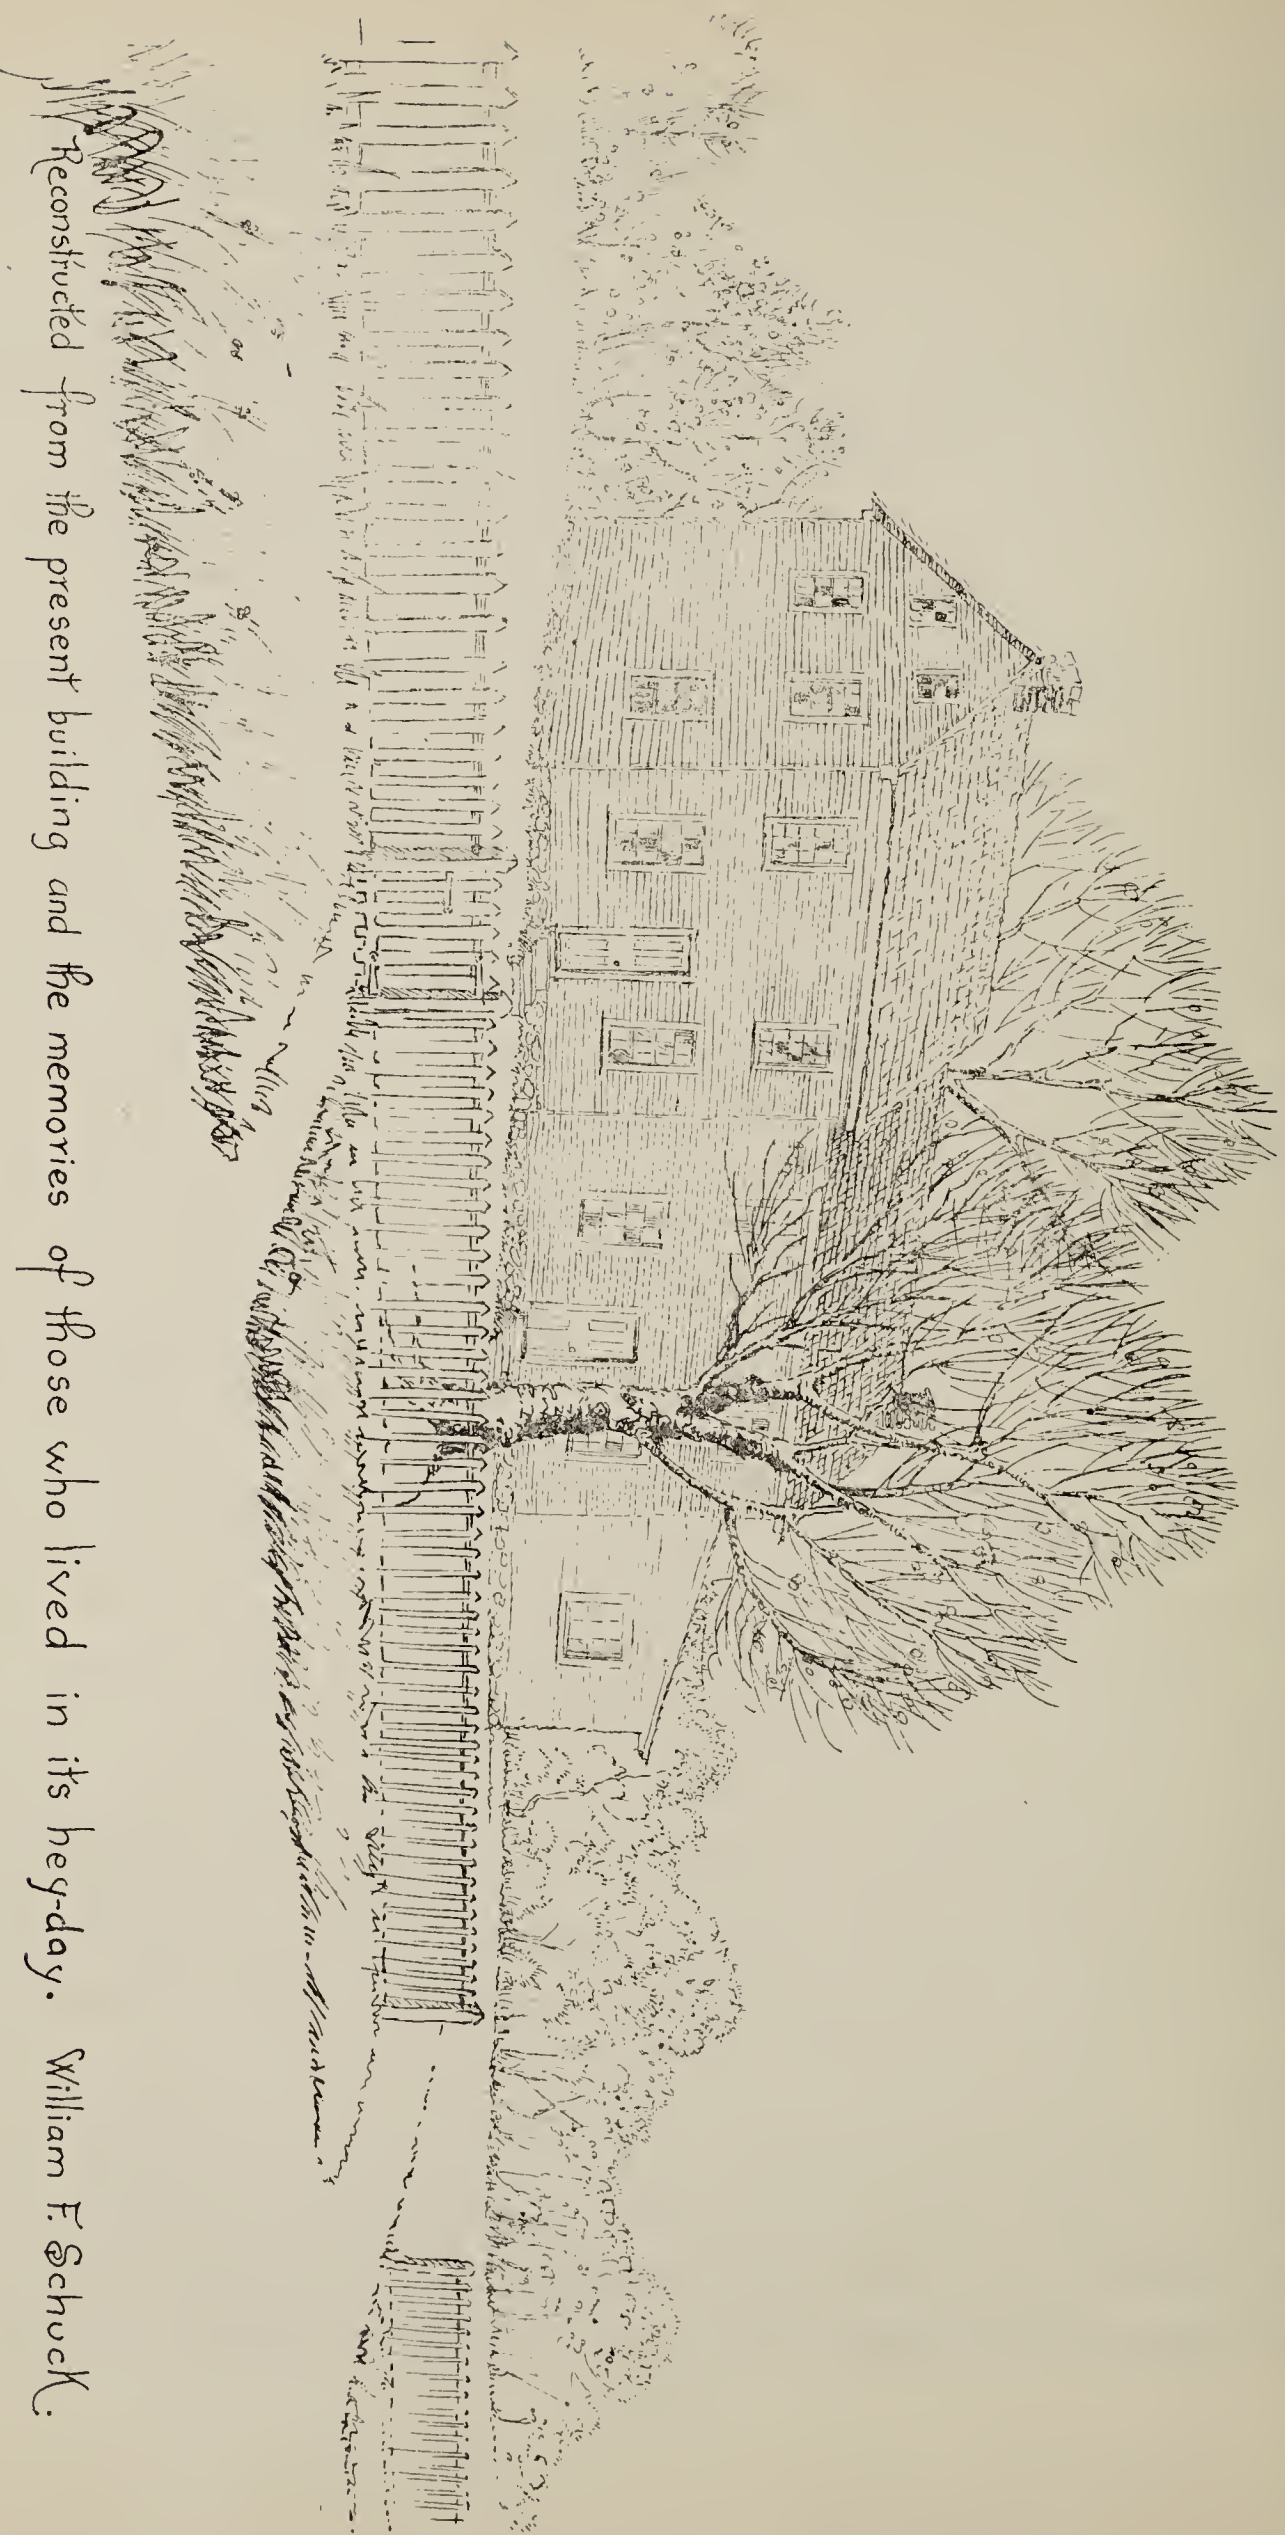 Reconstructed from the present building and the memories of those who lived in its hey-day. William F. Schuck.